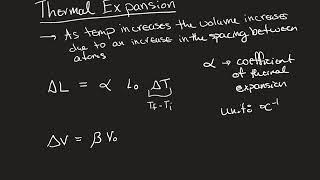 Thermal Expansion
→ As temp increases the volume increases
due to an increase in the spacing between
atoms
ΔL = α L₀ ΔT
T_f - T_i
α → coefficient
of thermal
expansion
units °C⁻¹
ΔV = β V₀